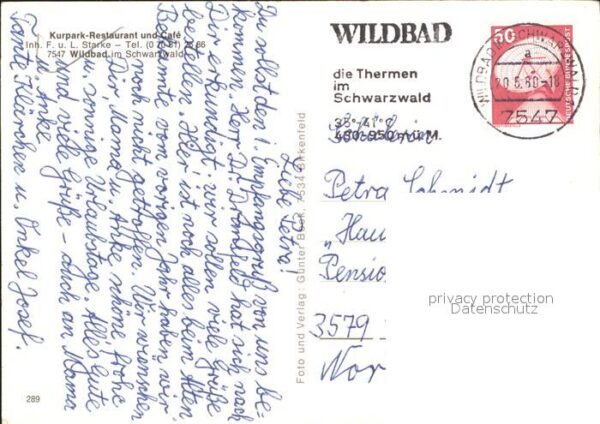 Kurpark-Restaurant und Café
Inh. F. u. L. Starke – Tel. (0 70 81) 25 66
7547 Wildbad im Schwarzwald
Liebe Petra!
Du sollst den 1. Empfangsgruß von uns be-
kommen. Herr Dr. hat sich nach
Dir erkundigt, wir sollen viele Grüße
bestellen. Hier ist noch alles beim Alten
Bekannte vom vorigen Jahr haben wir
noch nicht getroffen. Wir wünschen
Dir, Mama u. Anke schöne frohe
u. sonnige Urlaubstage. Alles Gute
und viele Grüße – auch an Mama
u. Anke
Tante Klärchen u. Onkel Josef.
289
Foto und Verlag: Günter Beck, 7534 Birkenfeld
WILDBAD
die Thermen
im
Schwarzwald
35°-41°C
430-950 m ü. M.
WILDBAD SCHWARZWALD
a
20.6.80-18
7547
50
DEUTSCHE BUNDESPOST
Petra Schmidt
„Hau
Pensio
3579
Nor
privacy protection
Datenschutz